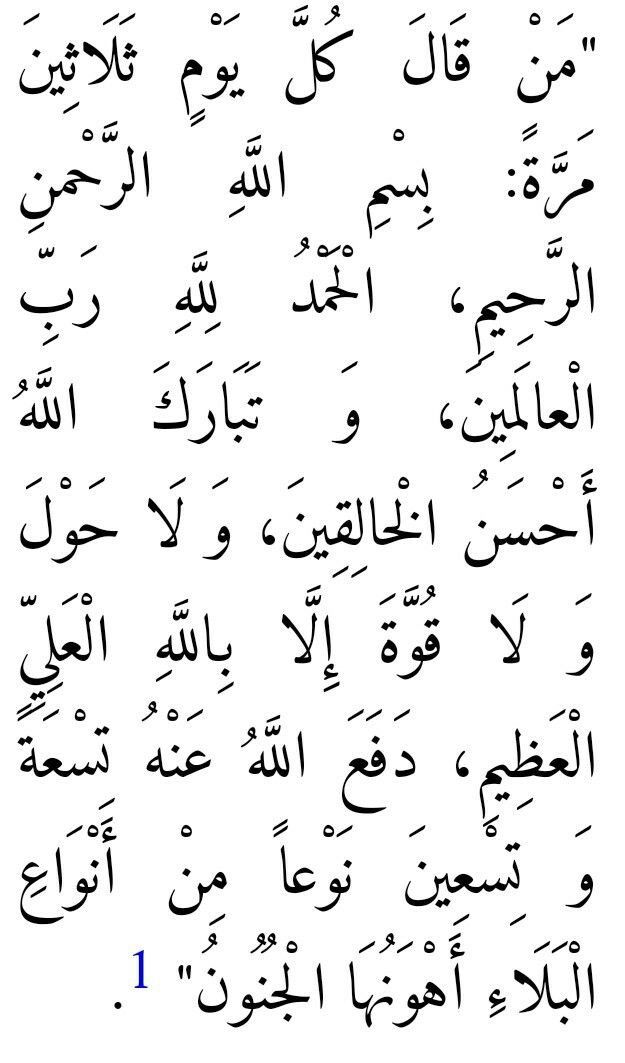 "مَنْ قَالَ كُلَّ يَوْمٍ ثَلَاثِينَ
مَرَّةً: بِسْمِ اللَّهِ الرَّحْمنِ
الرَّحِيمِ، الْحَمْدُ لِلَّهِ رَبِّ
الْعالَمِينَ، وَ تَبَارَكَ اللَّهُ
أَحْسَنُ الْخالِقِينَ، وَ لَا حَوْلَ
وَ لَا قُوَّةَ إِلَّا بِاللَّهِ الْعَلِيِّ
الْعَظِيمِ، دَفَعَ اللَّهُ عَنْهُ تِسْعَةً
وَ تِسْعِينَ نَوْعاً مِنْ أَنْوَاعِ
الْبَلَاءِ أَهْوَنُهَا الْجُنُونُ" 1 .